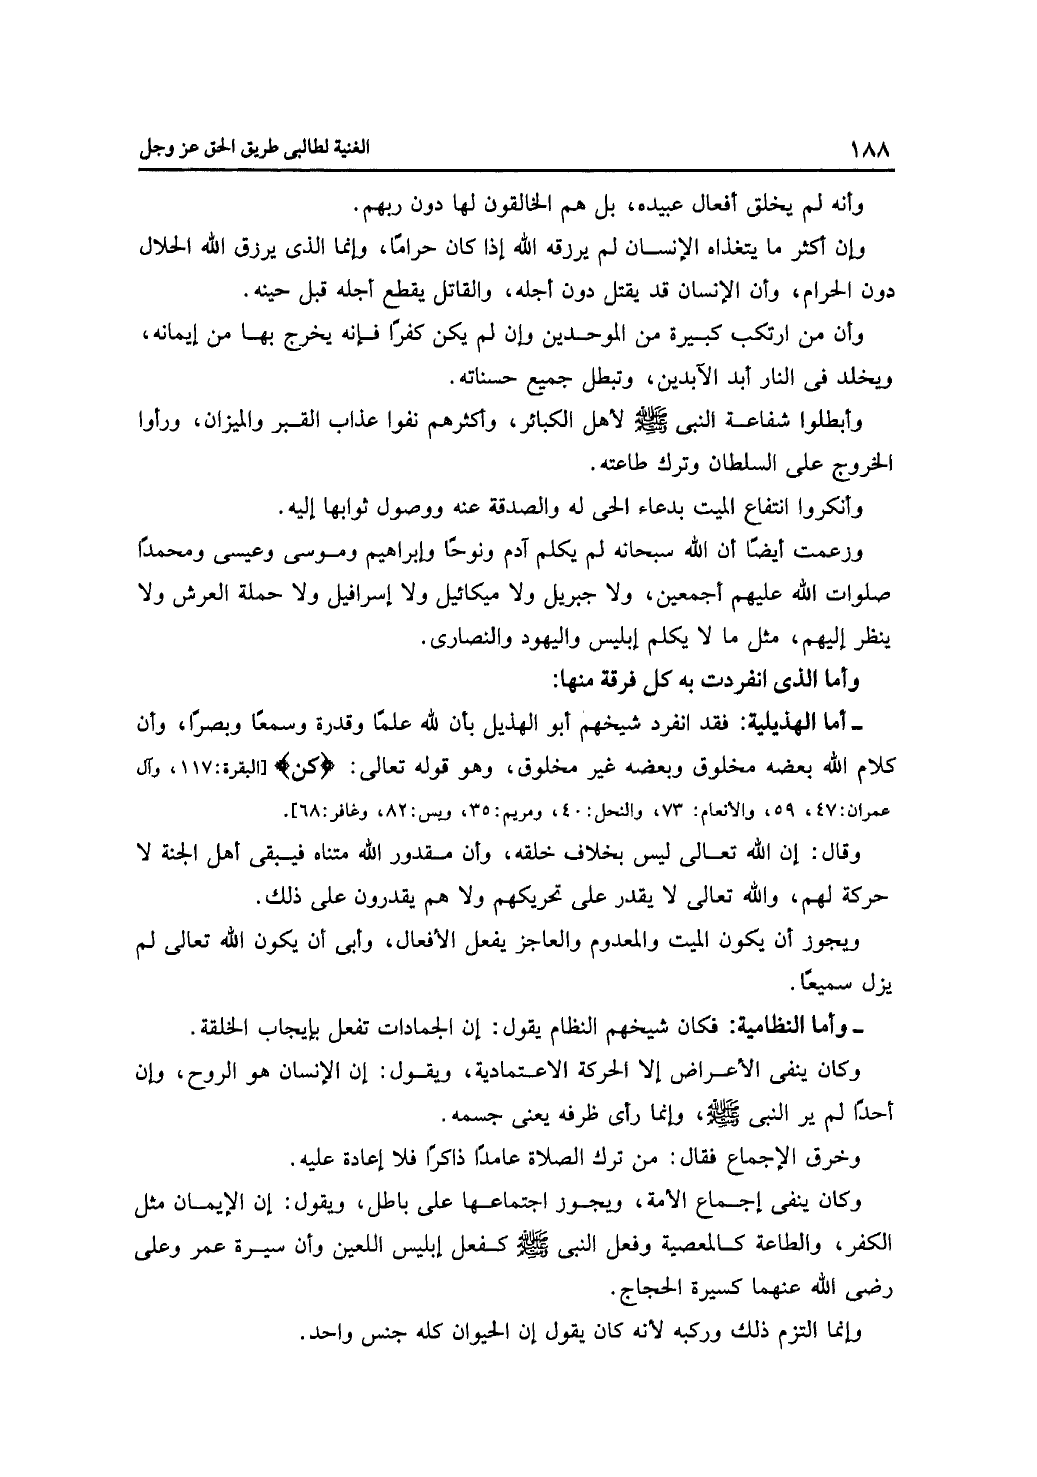 ١٨٨ الغنية لطالبى طريق الحق عز وجل
وأنه لم يخلق أفعال عبيده، بل هم الخالقون لها دون ربهم.
وإن أكثر ما يتغذاه الإنسان لم يرزقه الله إذا كان حرامًا، وإنما الذى يرزق الله الحلال
دون الحرام، وأن الإنسان قد يقتل دون أجله، والقاتل يقطع أجله قبل حينه.
وأن من ارتكب كبيرة من الموحدين وإن لم يكن كفرًا فإنه يخرج بها من إيمانه،
ويخلد فى النار أبد الآبدين، وتبطل جميع حسناته.
وأبطلوا شفاعة النبى ﷺ لأهل الكبائر، وأكثرهم نفوا عذاب القبر والميزان، ورأوا
الخروج على السلطان وترك طاعته.
وأنكروا انتفاع الميت بدعاء الحى له والصدقة عنه ووصول ثوابها إليه.
وزعمت أيضًا أن الله سبحانه لم يكلم آدم ونوحًا وإبراهيم وموسى وعيسى ومحمدًا
صلوات الله عليهم أجمعين، ولا جبريل ولا ميكائيل ولا إسرافيل ولا حملة العرش ولا
ينظر إليهم، مثل ما لا يكلم إبليس واليهود والنصارى.
وأما الذى انفردت به كل فرقة منها:
ـ أما الهذيلية: فقد انفرد شيخهم أبو الهذيل بأن لله علمًا وقدرة وسمعًا وبصرًا، وأن
كلام الله بعضه مخلوق وبعضه غير مخلوق، وهو قوله تعالى: ﴿كن﴾ [البقرة:١١٧، وآل
عمران:٤٧، ٥٩، والأنعام: ٧٣، والنحل:٤٠، ومريم:٣٥، ويس:٨٢، وغافر:٦٨].
وقال: إن الله تعالى ليس بخلاف خلقه، وأن مقدور الله متناه فيبقى أهل الجنة لا
حركة لهم، والله تعالى لا يقدر على تحريكهم ولا هم يقدرون على ذلك.
ويجوز أن يكون الميت والمعدوم والعاجز يفعل الأفعال، وأبى أن يكون الله تعالى لم
يزل سميعًا.
ـ وأما النظامية: فكان شيخهم النظام يقول: إن الجمادات تفعل بإيجاب الخلقة.
وكان ينفى الأعراض إلا الحركة الاعتمادية، ويقول: إن الإنسان هو الروح، وإن
أحدًا لم ير النبى ﷺ، وإنما رأى ظرفه يعنى جسمه.
وخرق الإجماع فقال: من ترك الصلاة عامدًا ذاكرًا فلا إعادة عليه.
وكان ينفى إجماع الأمة، ويجوز اجتماعها على باطل، ويقول: إن الإيمان مثل
الكفر، والطاعة كالمعصية وفعل النبى ﷺ كفعل إبليس اللعين وأن سيرة عمر وعلى
رضى الله عنهما كسيرة الحجاج.
وإنما التزم ذلك وركبه لأنه كان يقول إن الحيوان كله جنس واحد.